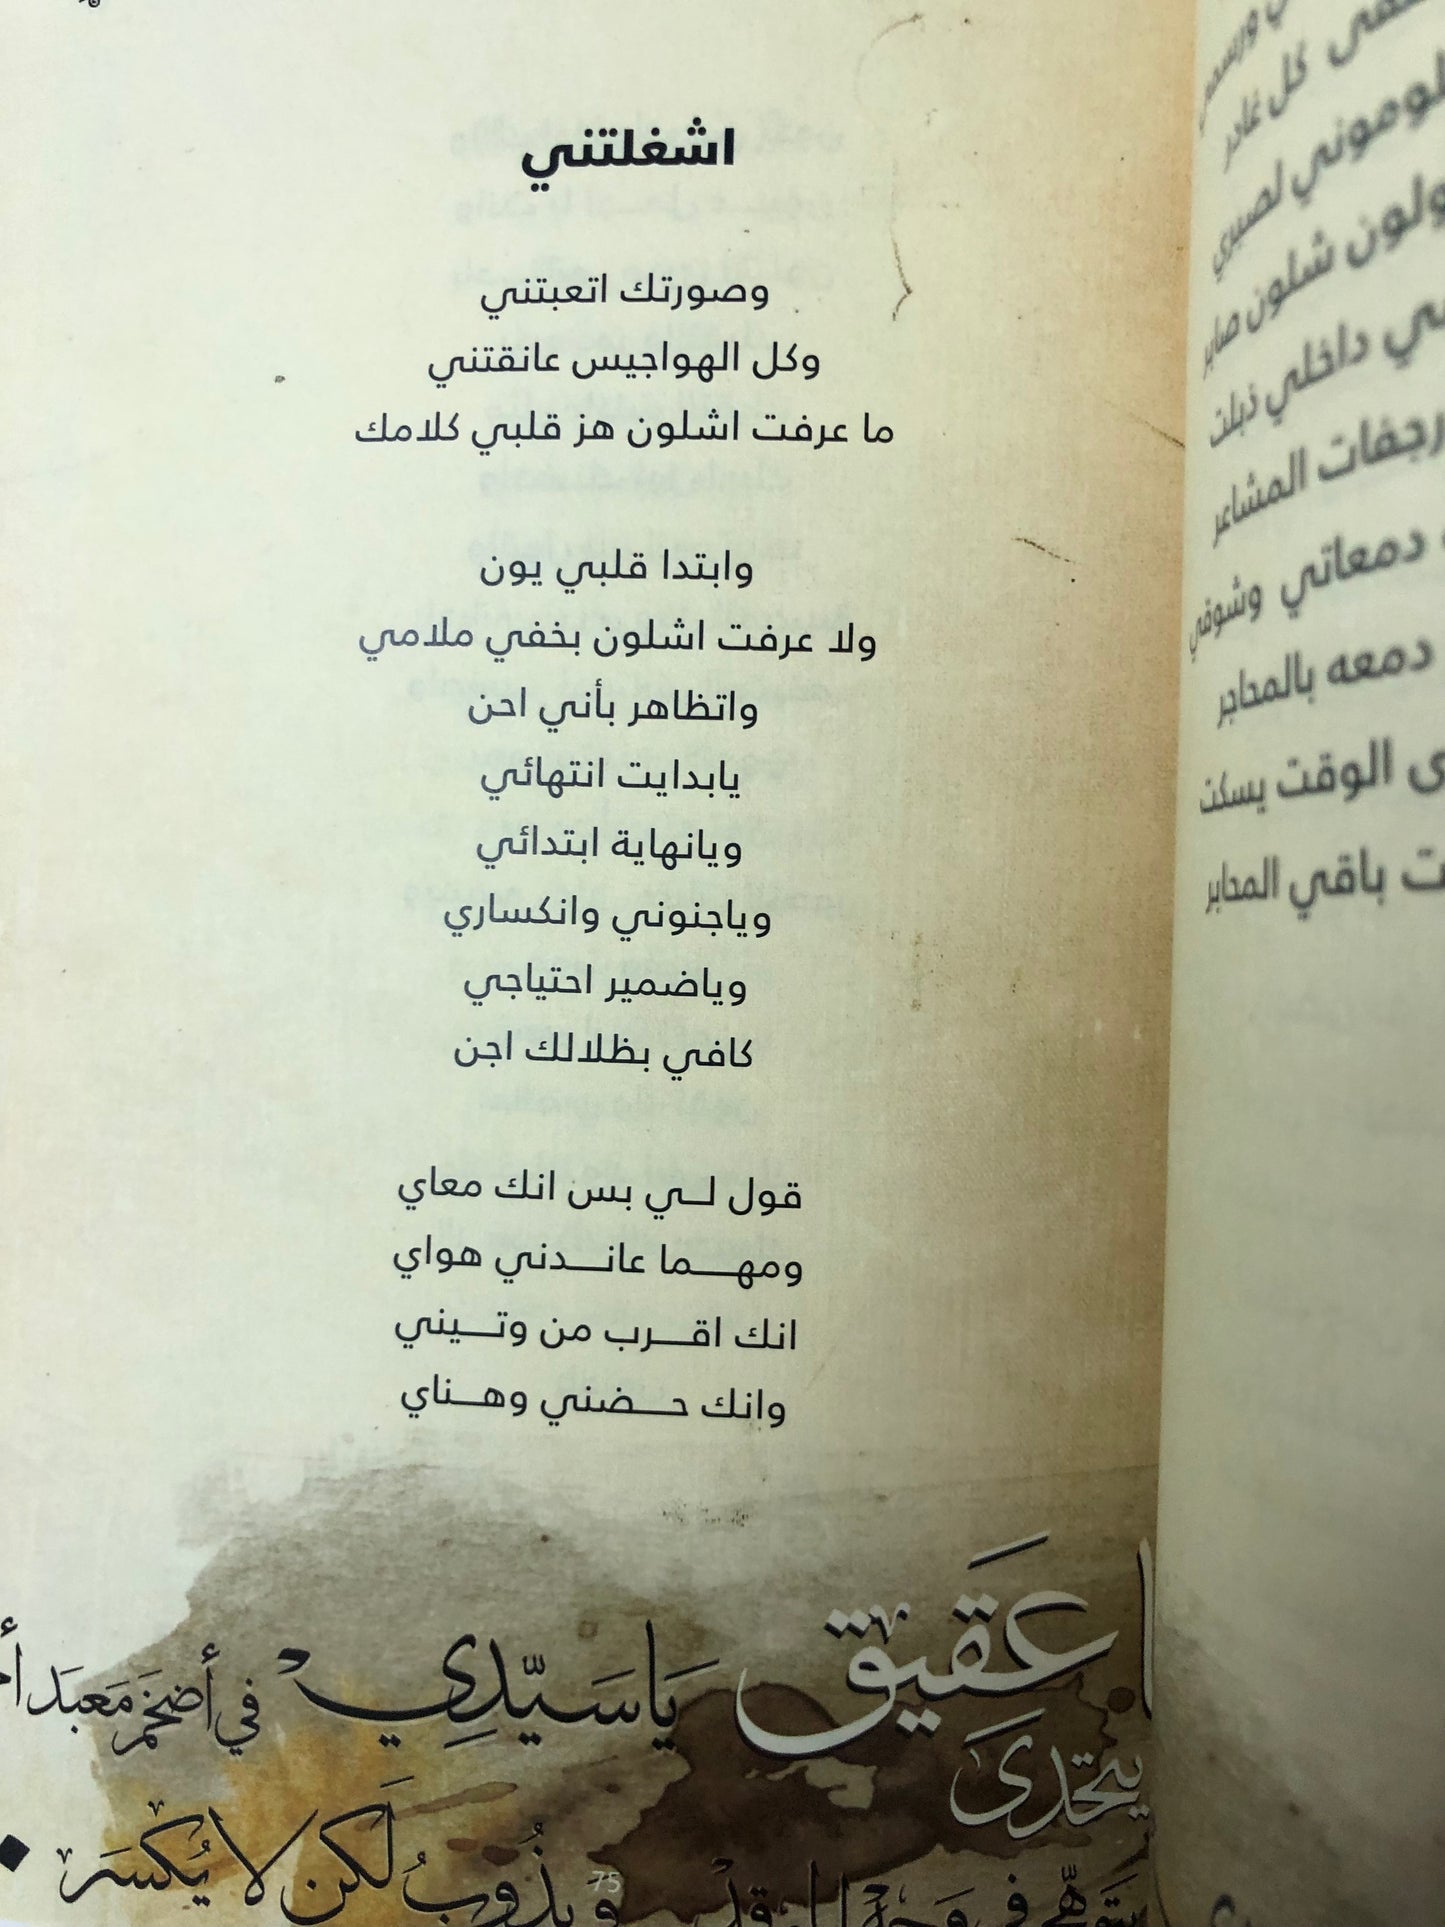 اشغلتني
وصورتك اتعبتني
وكل الهواجيس عانقتني
ما عرفت اشلون هز قلبي كلامك
وابتدا قلبي يون
ولا عرفت اشلون بخفي ملامي
واتظاهر بأني احن
يابدايت انتهائي
ويانهاية ابتدائي
وياجنوني وانكساري
وياضمير احتياجي
كافي بظلالك اجن
قول لي بس انك معاي
ومهما عاندني هواي
انك اقرب من وتيني
وانك حضني وهناي
عَقيق يَا سَيّدِي في أضخَم مَعبَد
يتحَدى
وَيذُوبُ لَكن لا يُكسَر
75
كل غادر
لصبري
شلون صابر
داخلي ذبلت
رجفات المشاعر
دمعاتي وشوقي
دمعه بالمحاجر
الوقت يسكت
باقي المحابر